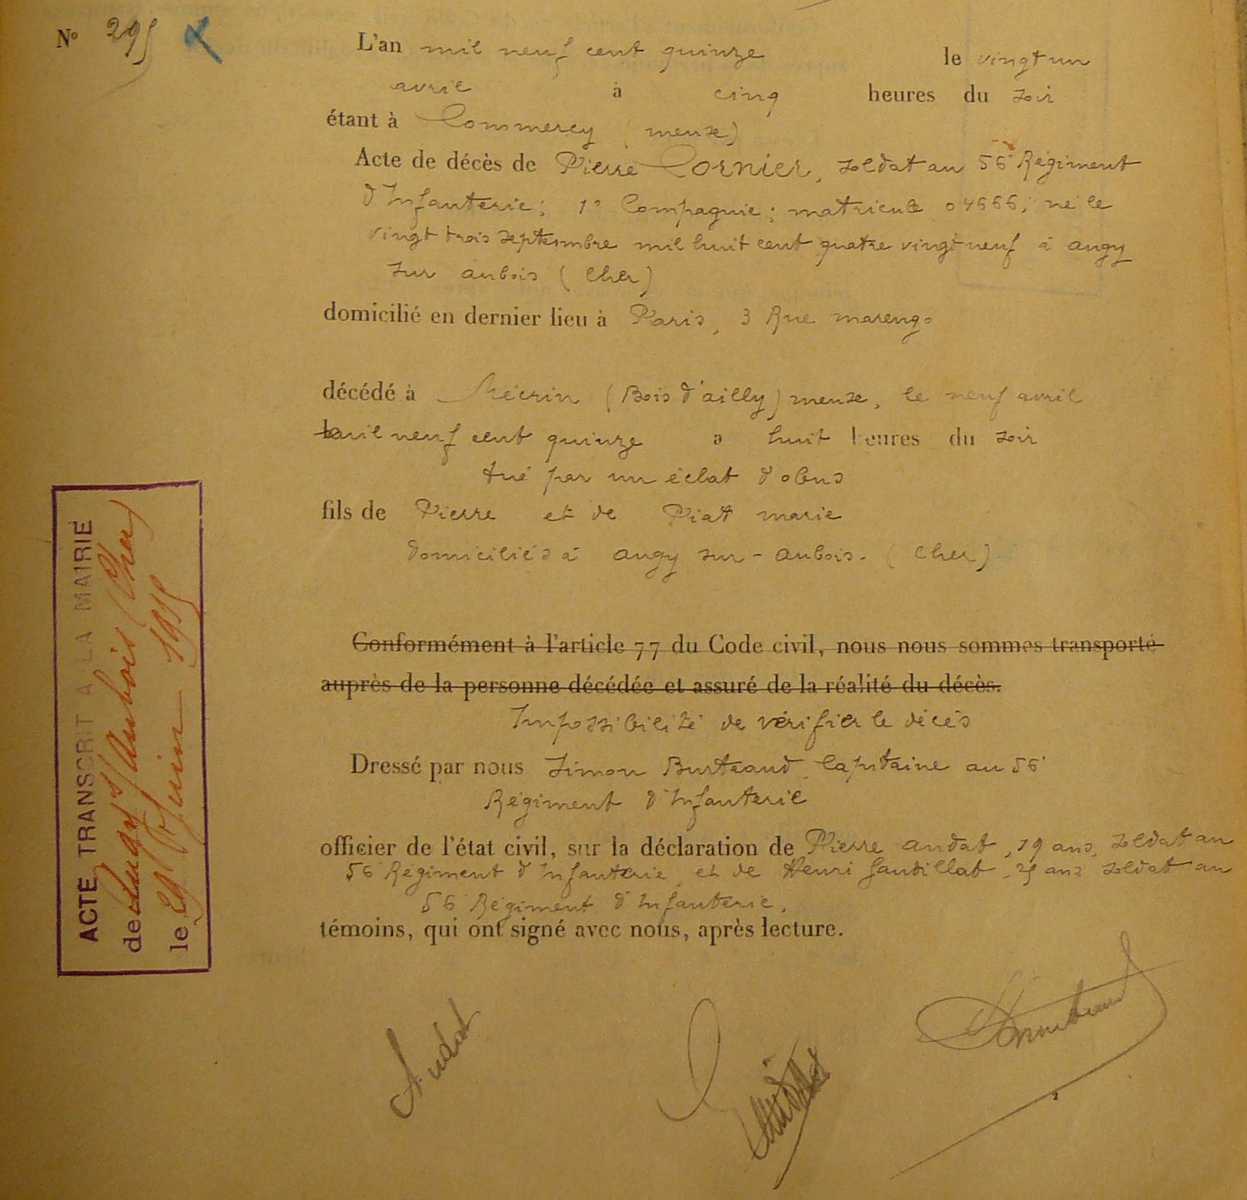 N° 295
L'an mil neuf cent quinze le vingt un
avril à cinq heures du soir
étant à Commercy (meuse)
Acte de décès de Pierre Cornier, soldat au 56 Régiment
d'Infanterie; 1e Compagnie; matricule 04666; né le
vingt trois septembre mil huit cent quatre vingt neuf à augy
sur aubois (Cher)
domicilié en dernier lieu à Paris, 3 Rue marengo
décédé à (Bois d'ailly) meuse, le neuf avril
mil neuf cent quinze à huit heures du soir
tué par un éclat d'obus
fils de Pierre et de Piat marie
domiciliés à augy sur-aubois. (Cher)
Conformément à l'article 77 du Code civil, nous nous sommes transporté
auprès de la personne décédée et assuré de la réalité du décès.
Impossibilité de vérifier le décès
Dressé par nous Simon Capitaine au 56
Régiment d'Infanterie
officier de l'état civil, sur la déclaration de Pierre audat, 19 ans, soldat au
56 Régiment d'Infanterie, et de Henri Gaudillat, ans soldat au
56 Régiment d'Infanterie,
témoins, qui ont signé avec nous, après lecture.
Audat
ACTE TRANSCRIT A LA MAIRIE
de Augy s/ Aubois (Cher)
le 29 Juin 1915